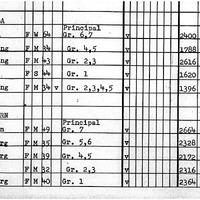 A
Principal
F W 54 Gr. 6,7 v 2400
ng F M 34 Gr. 4,5 v 1788
ng F M 43 Gr. 2,3 v 2616
F S 44 Gr. 1 v 1620
ng F M 34 v Gr. 2,3,4,5 v 1396
RN
Principal
n F M 49 Gr. 7 v 2664
rg F M 35 Gr. 5,6 v 2328
rg F M 39 Gr. 4,5 v 2172
F M 32 Gr. 2,3 v 2316
rg F M 40 Gr. 1 v 2364